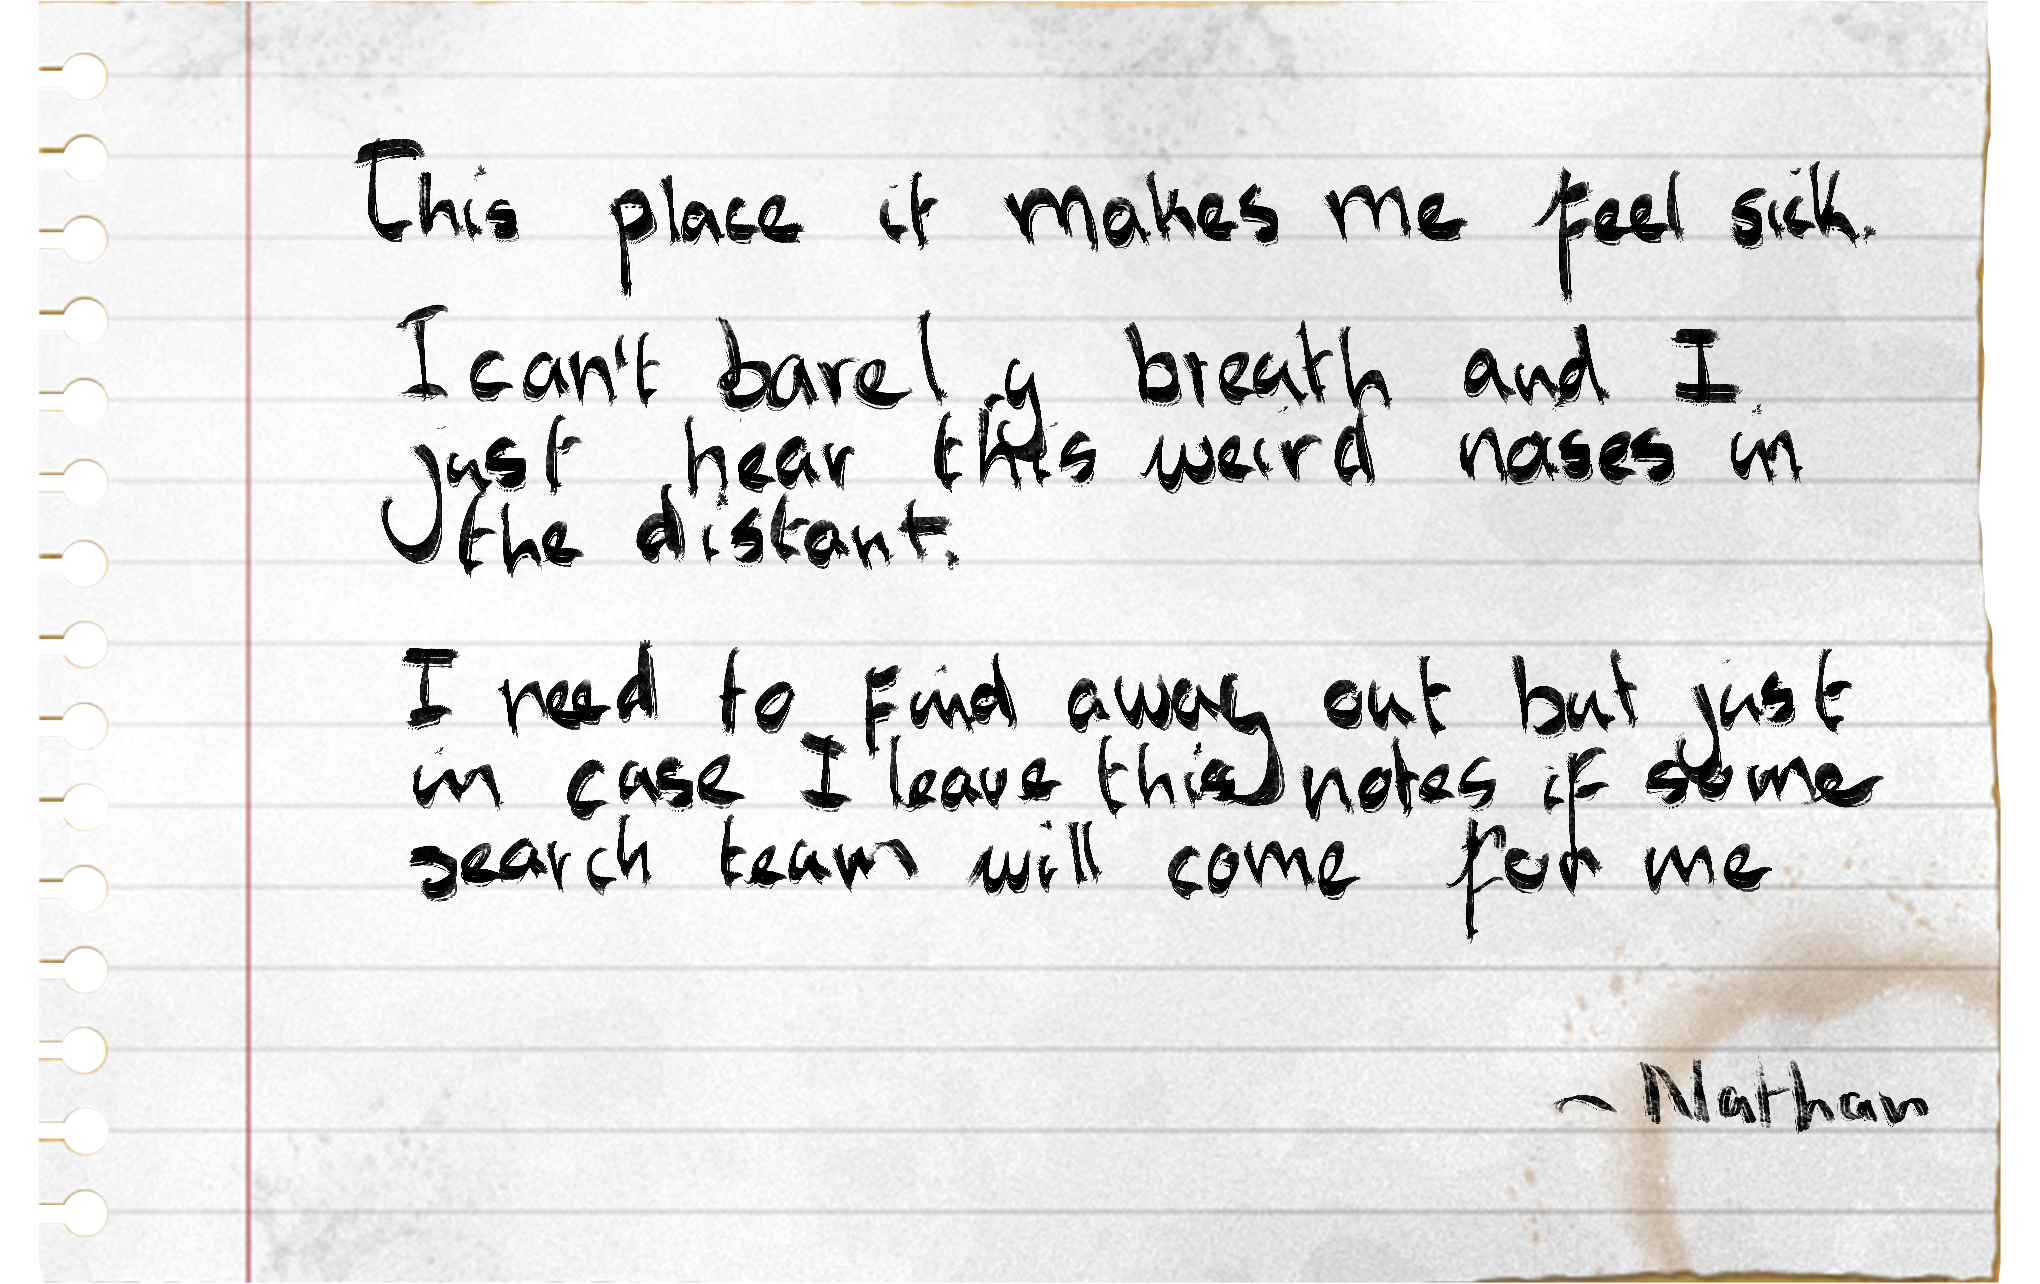 This place it makes me feel sick.
I can't barely breath and I
just hear this weird noses in
the distant.
I need to find away out but just
in case I leave this notes if some
search team will come for me
~ Nathan